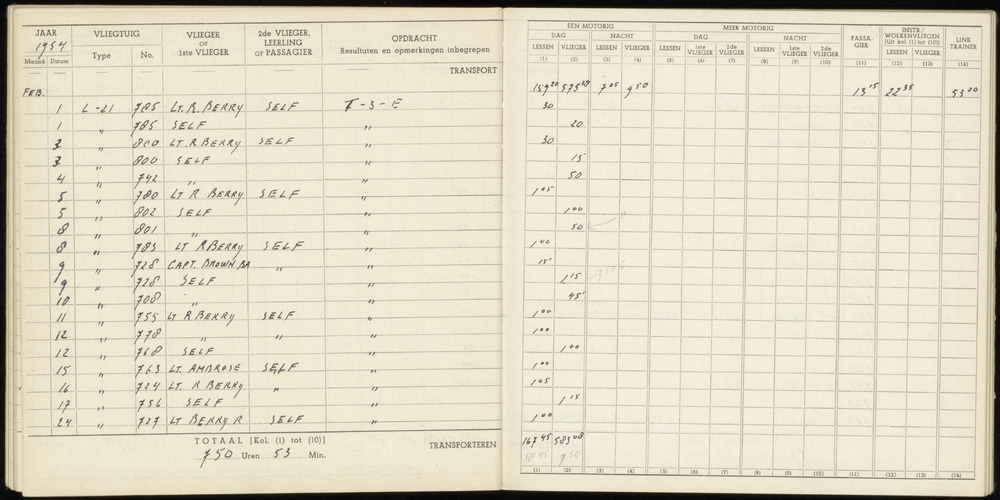 JAAR 1954 VLIEGTUIG VLIEGER OF 1ste VLIEGER 2de VLIEGER, LEERLING OF PASSAGIER OPDRACHT
Maand Datum Type No. Resultaten en opmerkingen inbegrepen
TRANSPORT
FEB.
1 L-21 785 LT. R. BERRY SELF T-3-E
1 " 785 SELF "
2 " 800 LT. R BERRY SELF "
3 " 800 SELF "
4 " 742 " "
5 " 780 LT R BERRY SELF "
5 " 802 SELF "
8 " 801 " "
8 " 783 LT R BERRY SELF "
9 " 728 CAPT. BROWN BA " "
9 " 728 SELF "
10 " 708 " "
11 " 755 LT R BERRY SELF "
12 " 778 " " "
12 " 768 SELF "
15 " 763 LT. AMBROSE SELF "
16 " 724 LT. R BERRY " "
17 " 756 SELF "
24 " 727 LT BERRY R SELF "
TOTAAL [Kol. (1) tot (10)] TRANSPORTEREN
750 Uren 53 Min.
EEN MOTORIG MEER MOTORIG
DAG NACHT DAG NACHT PASSA-GIER INSTR./WOLKENVLIEGEN [Uit kol. (1) tot (10)] LINK TRAINER
LESSEN VLIEGER LESSEN VLIEGER LESSEN 1ste VLIEGER 2de VLIEGER LESSEN 1ste VLIEGER 2de VLIEGER LESSEN VLIEGER
(1) (2) (3) (4) (5) (6) (7) (8) (9) (10) (11) (12) (13) (14)
159 20 575 28 7 05 9 50 13 15 22 35 53 20
30
20
30
15
50
1 05
1 00
50
1 00
15
1 15
45
1 00
1 00
1 00
1 00
1 05
1 15
1 00
167 45 583 08
7 50
(1) (2) (3) (4) (5) (6) (7) (8) (9) (10) (11) (12) (13) (14)